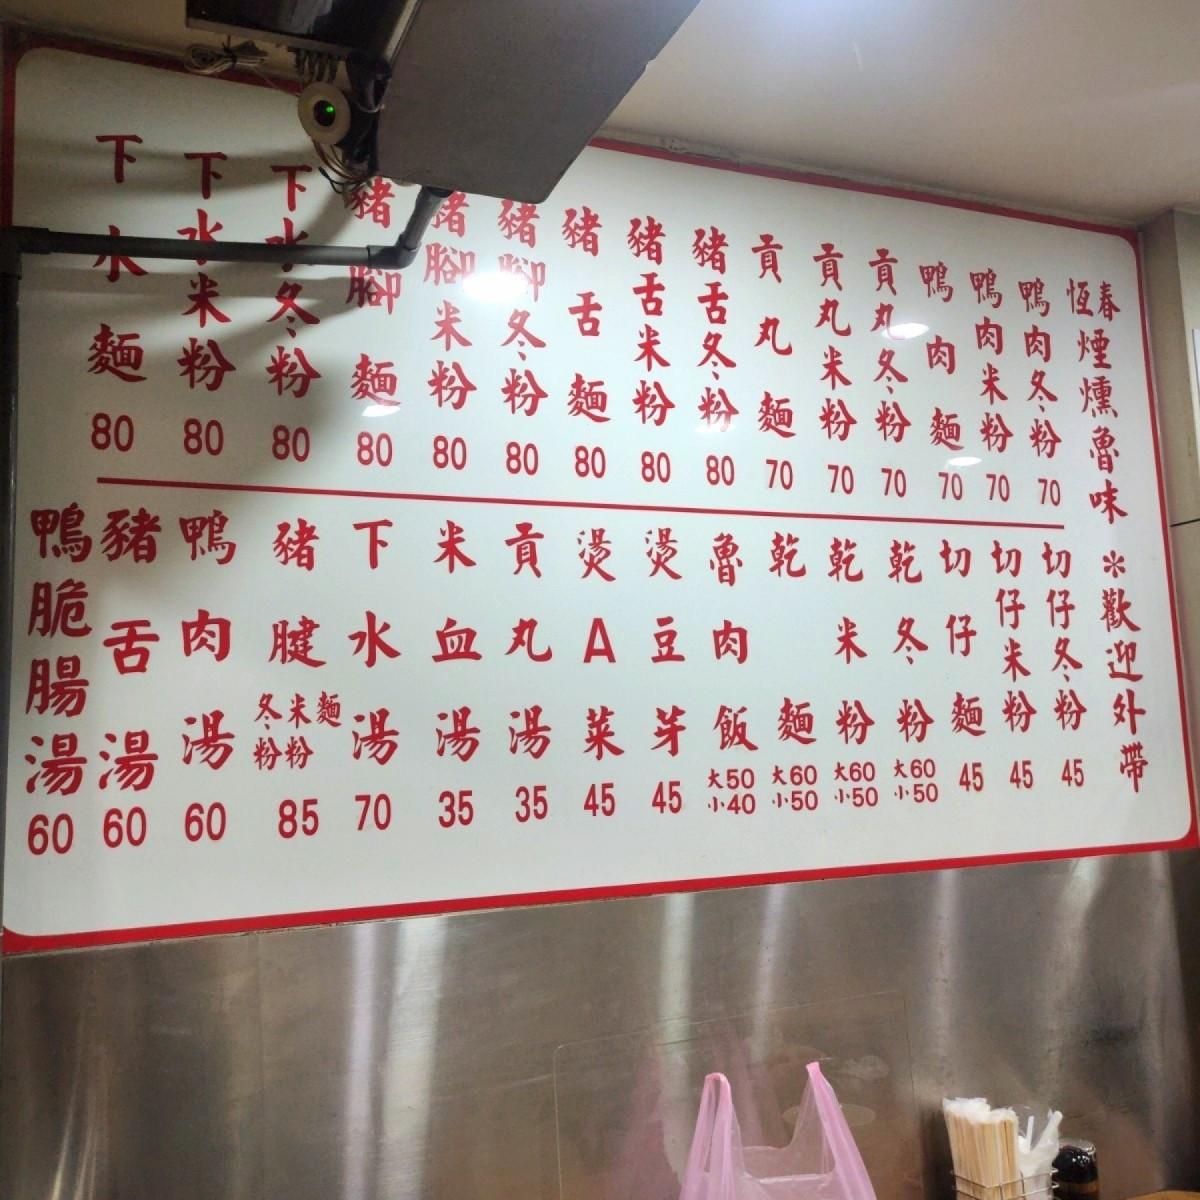 恆春煙燻魯味 *歡迎外帶
鴨肉冬粉 70
鴨肉米粉 70
鴨肉麵 70
貢丸冬粉 70
貢丸米粉 70
貢丸麵 70
豬舌冬粉 80
豬舌米粉 80
豬舌麵 80
豬腳冬粉 80
豬腳米粉 80
豬腳麵 80
下水冬粉 80
下水米粉 80
下水麵 80
切仔冬粉 45
切仔米粉 45
切仔麵 45
乾冬粉 大60 小50
乾米粉 大60 小50
乾麵 大60 小50
魯肉飯 大50 小40
燙豆芽 45
燙A菜 45
貢丸湯 35
米血湯 35
下水湯 70
豬腱麵米粉冬粉 85
鴨肉湯 60
豬舌湯 60
鴨脆腸湯 60